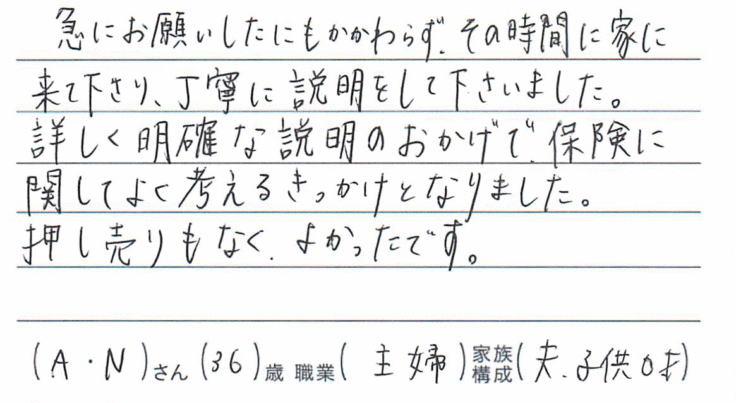 急にお願いしたにもかかわらず、その時間に家に
来て下さり、丁寧に説明をして下さいました。
詳しく明確な説明のおかげで、保険に
関してよく考えるきっかけとなりました。
押し売りもなく、よかったです。
(A・N)さん(36)歳 職業(主婦)家族構成(夫、子供0才)